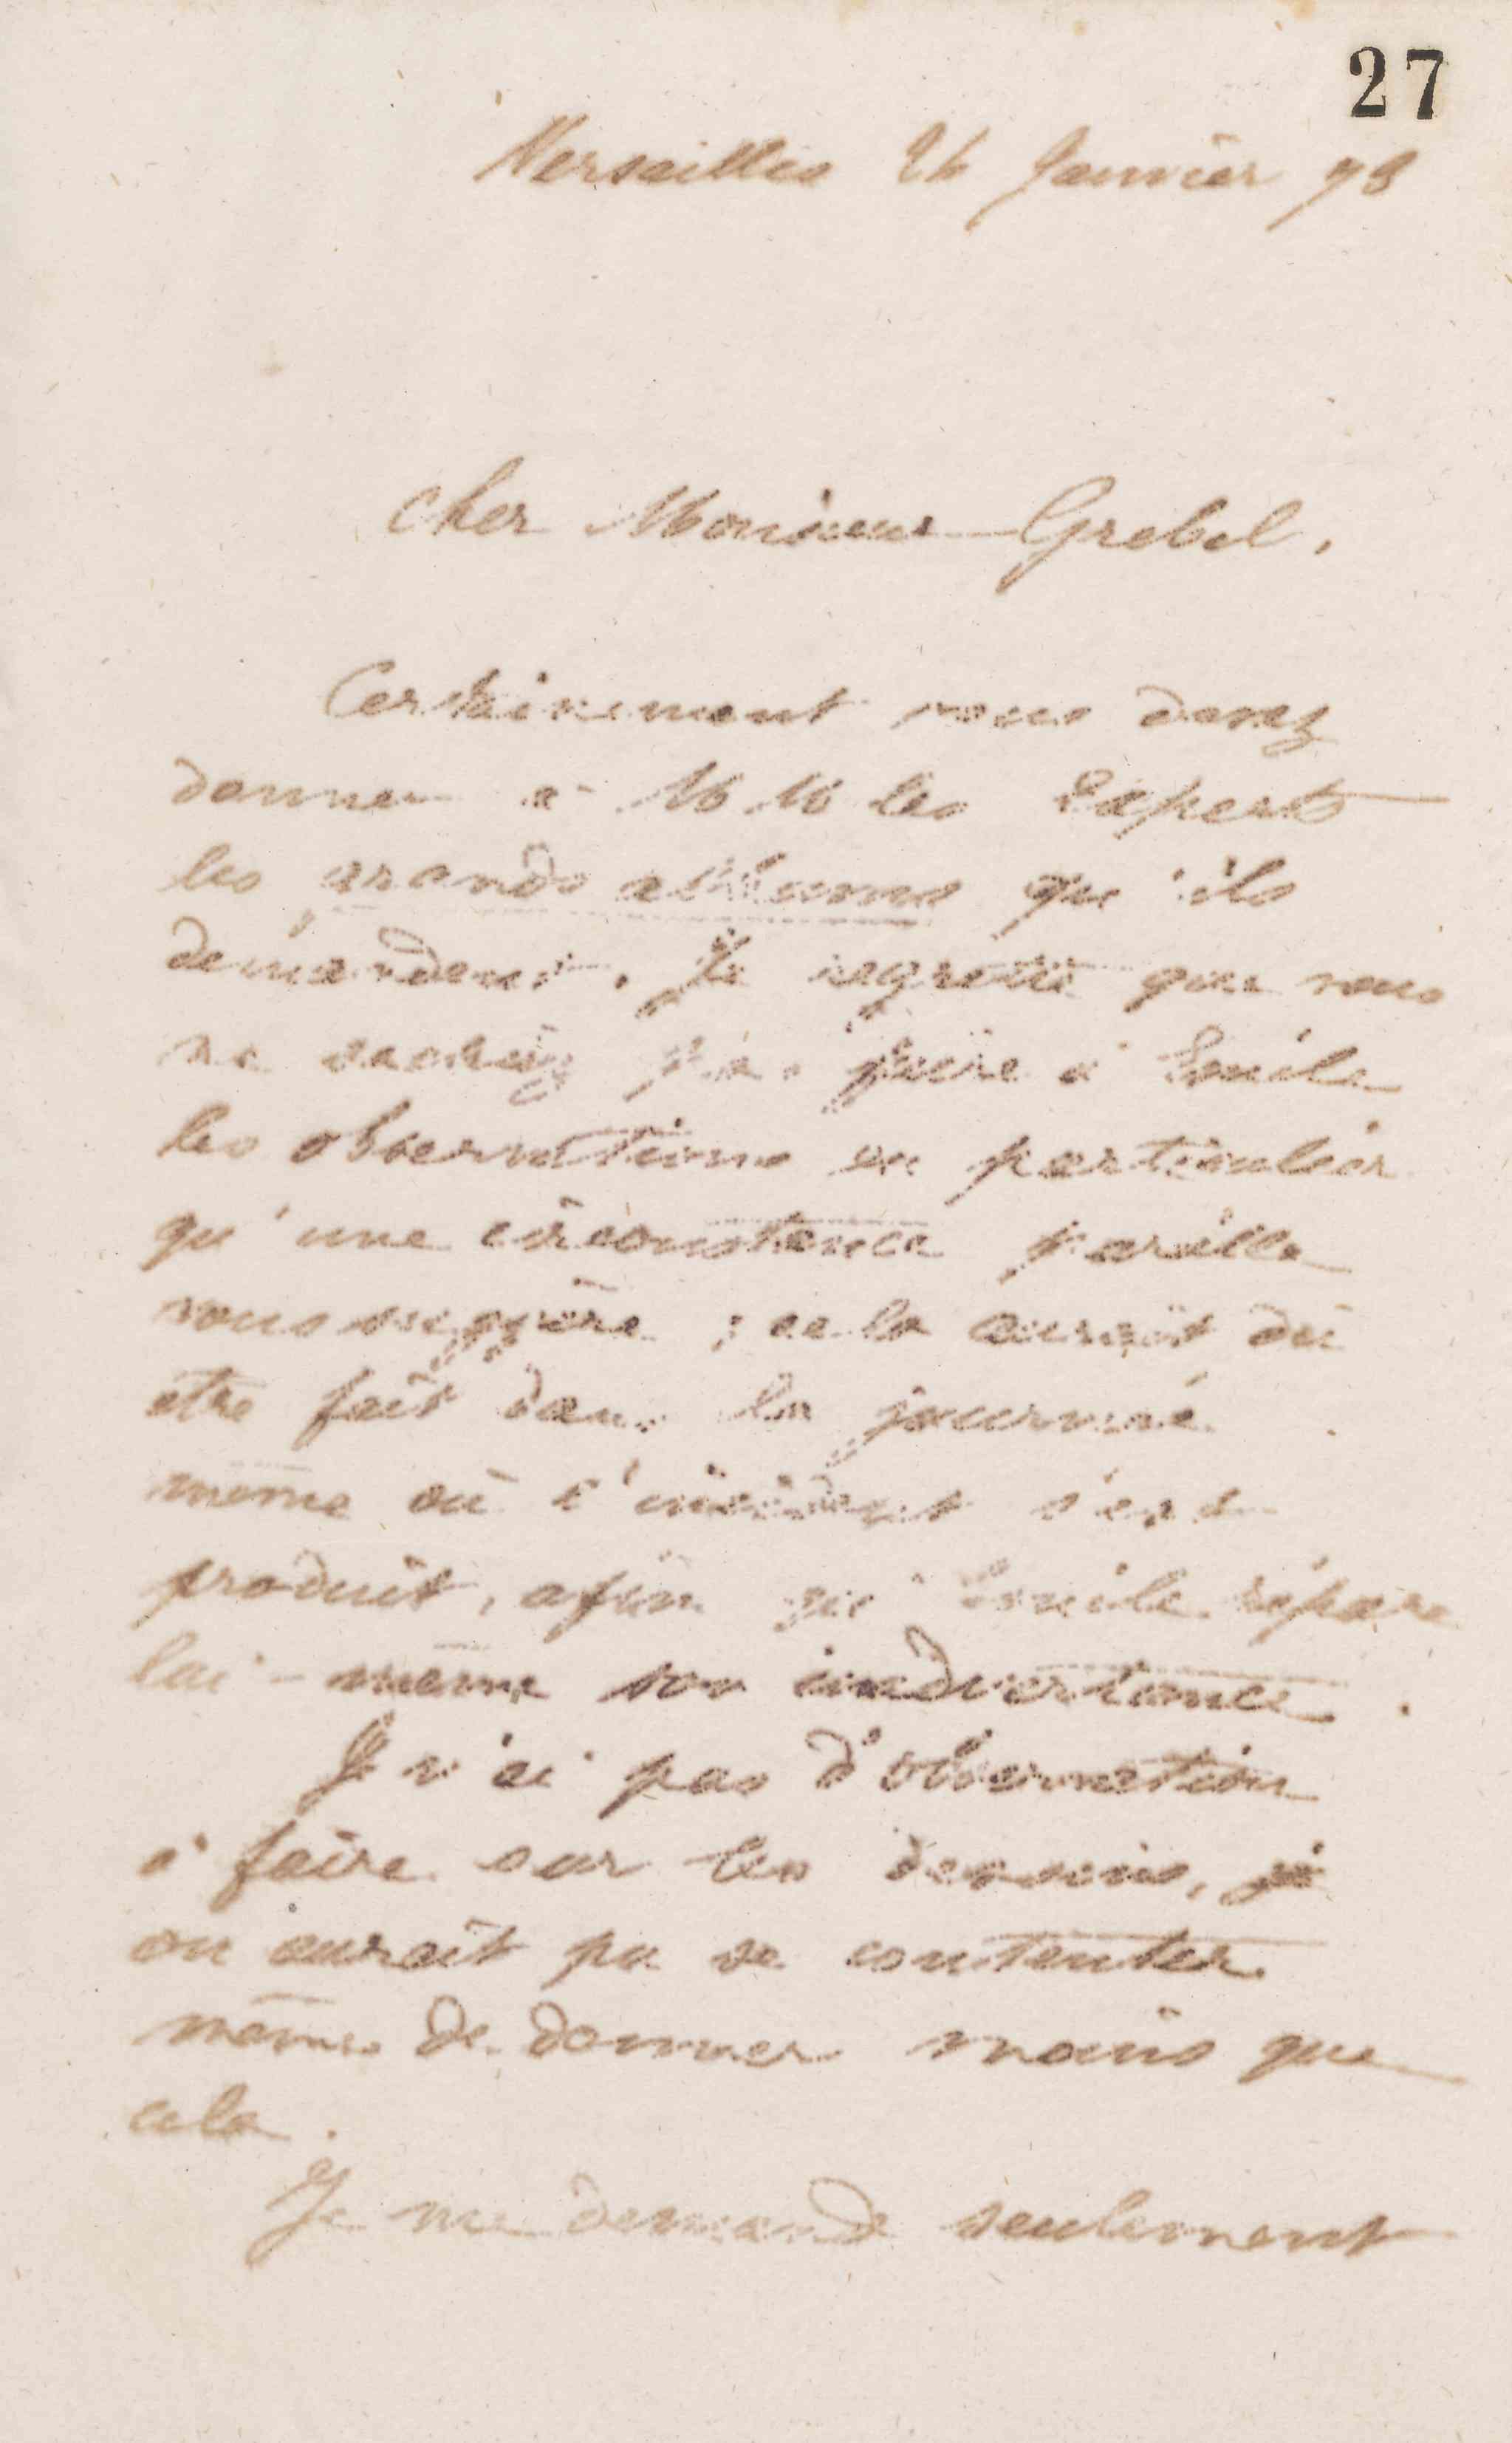 27
Versailles 24 Janvier 78
Cher Monsieur Grebel,
Certainement vous devez
donner à MM les Experts
les grands albums qu'ils
demandent. Je regrette que vous
ne sachiez pas faire à Emile
les observations en particulier
qu'une circonstance pareille
vous suggère ; cela aurait dû
être fait dans la journée
même où l'incident s'est
produit, afin qu'Emile répare
lui-même son inadvertance.
Je n'ai pas d'observation
à faire sur les dessins,
on aurait pu se contenter
même de donner moins que
cela.
Je me demande seulement